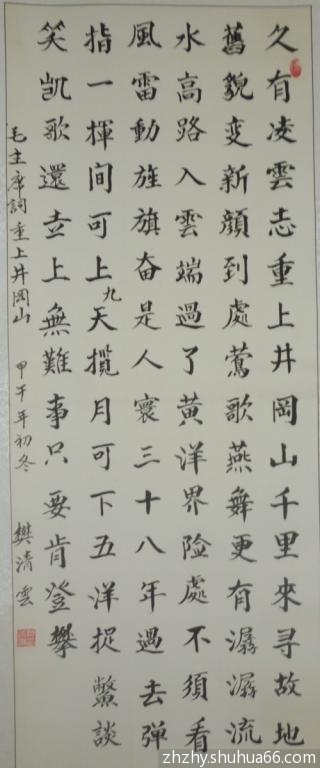 久有凌雲志重上井岡山千里來寻故地
舊貌变新顔到處莺歌燕舞更有潺潺流
水高路入雲端過了黄洋界险處不須看
風雷動旌旗奋是人寰三十八年過去弹
指一揮間可上九天攬月可下五洋捉鱉談
笑凱歌還世上無難事只要肯登攀
毛主席詞重上井岡山 甲午年初冬 樊清雲
zhzhy.shuhua66.com